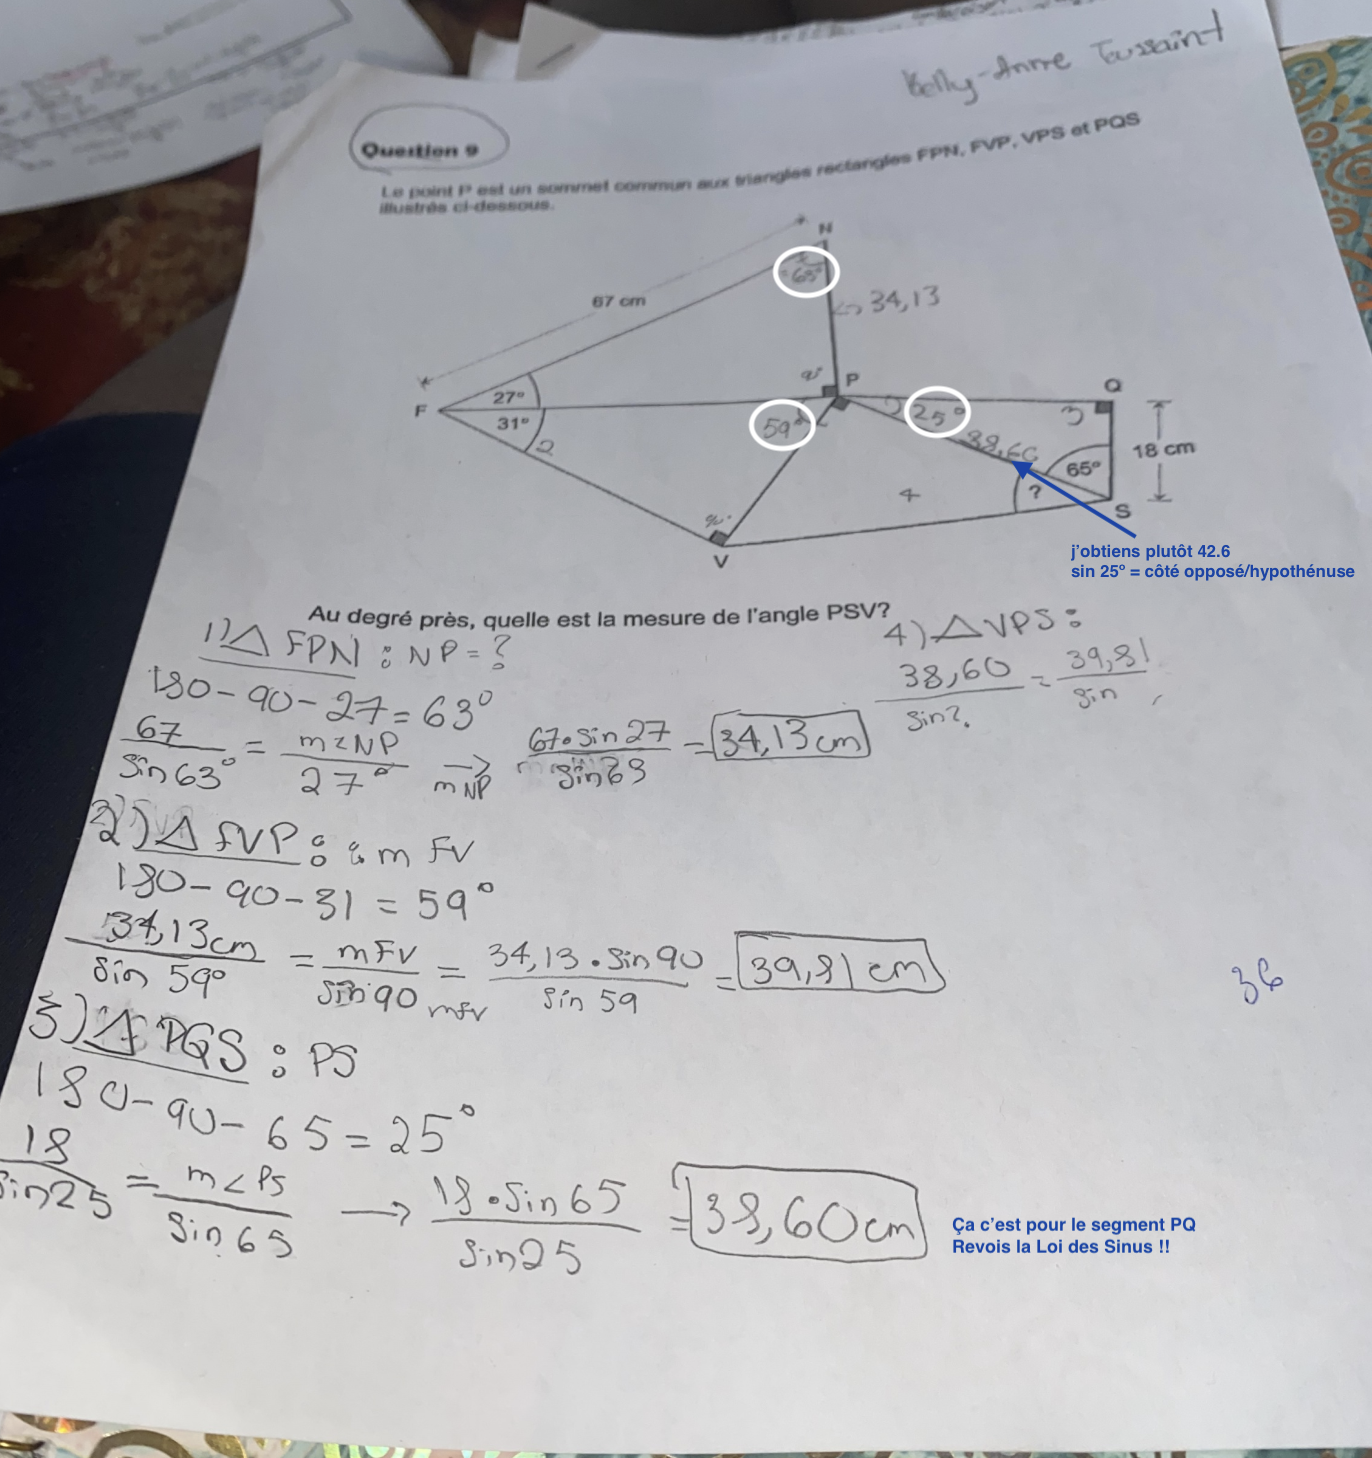 Kelly-Anne Toussaint
Question 9
Le point P est un sommet commun aux triangles rectangles FPN, FVP, VPS et PQS
illustrés ci-dessous.
N
63°
67 cm
34,13
P
Q
F
27°
31°
2
59°
25°
3
38,60
18 cm
65°
4
?
S
V
j'obtiens plutôt 42.6
sin 25º = côté opposé/hypothénuse
Au degré près, quelle est la mesure de l'angle PSV?
1) Δ FPN : NP = ?
180 - 90 - 27 = 63°
67 / sin 63° = m<NP / 27° → mNP 67 • sin 27 / sin 63 = 34,13 cm
4) Δ VPS :
38,60 / sin ? = 39,81 / sin
2) Δ FVP : m FV
180 - 90 - 31 = 59°
34,13 cm / sin 59° = mFV / sin 90 = mFV 34,13 • sin 90 / sin 59 = 39,81 cm
36
3) Δ PQS : PS
180 - 90 - 65 = 25°
18 / sin 25 = m<PS / sin 65 → 18 • sin 65 / sin 25 = 38,60 cm
Ça c'est pour le segment PQ
Revois la Loi des Sinus !!